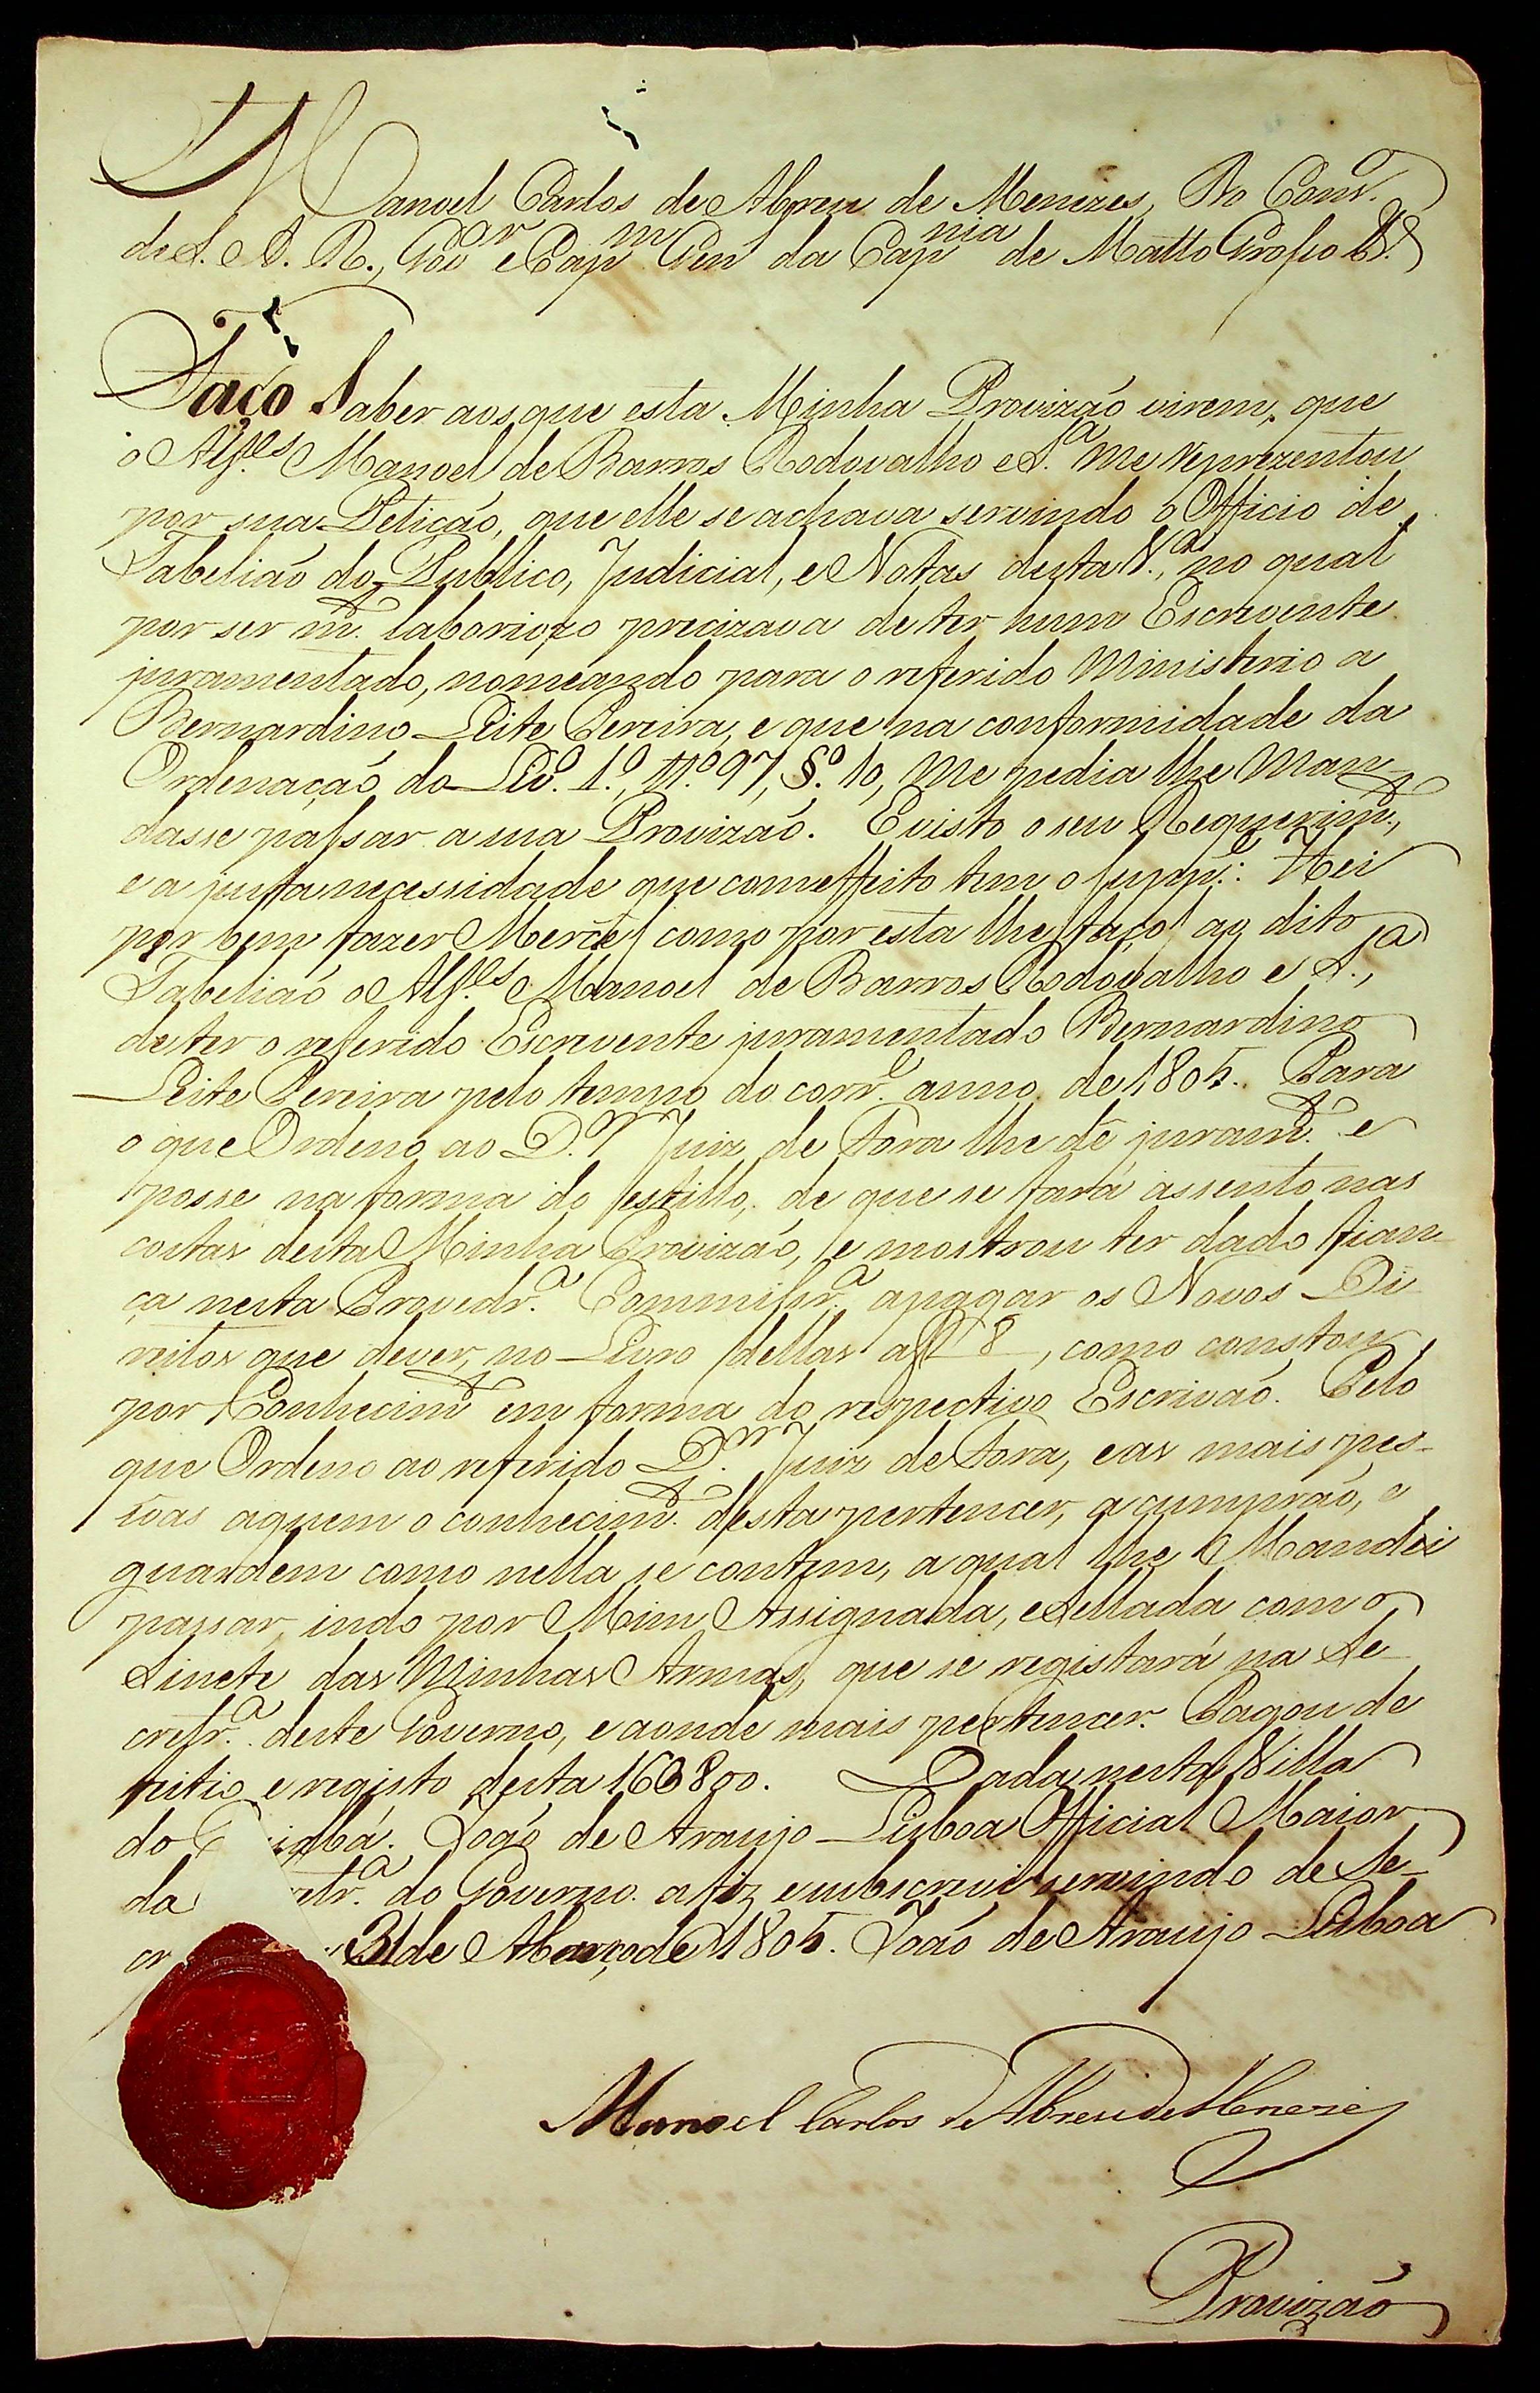 Manoel Carlos de Abreu de Menezes, Do Cons.º
de S. A. R., Gov.or e Cap.m Gen da Cap.nia de Matto Grosso &.ª
Faço Saber aos que esta Minha Provizão virem, que
o Alf.es Manoel de Barros Rodovalho e S.ª Me reprezentou
por sua Petição, que elle se achava servindo o Officio de
Tabelião do Publico, Judicial, e Notas desta V.ª, no qual
por ser m.to laboriozo precizava de ter hum Escrevente
juramentado, nomeando para o referido Ministerio a
Bernardino Leite Pereira, e que na conformidade da
Ordenação do Liv.º 1.º, tt.º 97, §.º 10, Me pedia lhe Man-
dasse passar a sua Provizão. E visto o seu Requerim.to,
e a justa necessidade que com effeito tem o supp.e: Hei
por bem fazer Mercê (como por esta lhe faço) ao dito
Tabelião o Alf.es Manoel de Barros Rodovalho e S.ª,
de ter o referido Escrevente juramentado Bernardino
Leite Pereira pelo tempo do corr.e anno de 1805. Para
o que Ordeno ao D.or Juiz de Fora lhe dê juram.to e
posse na forma do estillo, de que se fará assento nas
costas desta Minha Provizão, e mostrou ter dado fian-
ça nesta Provedr.ª Commissr.ª apagar os Novos Di-
reitos que dever, no Livro dellas af 8, como constou
por Conhecim.to em forma do respectivo Escrivão. Pelo
que Ordeno ao referido D.or Juiz de Fora, e as mais pes-
soas aquem o conhecim.to desta pertencer, a cumprão, e
guardem como nella se contem, a qual lhe Mandei
passar, indo por Mim Assignada, e Sellada com o
Sinete das Minhas Armas, que se registará na Se-
cretr.ª deste Governo, e aonde mais pertencer. Pagou de
feitio e registo desta 16$800. Dada nesta Villa
do iabá. João de Araujo Lisboa Official Maior
da retr.ª do Governo a fiz e subscrevi servindo de Se-
cr 31 de Março de 1805. João de Araujo Lisboa
Manoel Carlos de Abreu de Menezes
Provizão